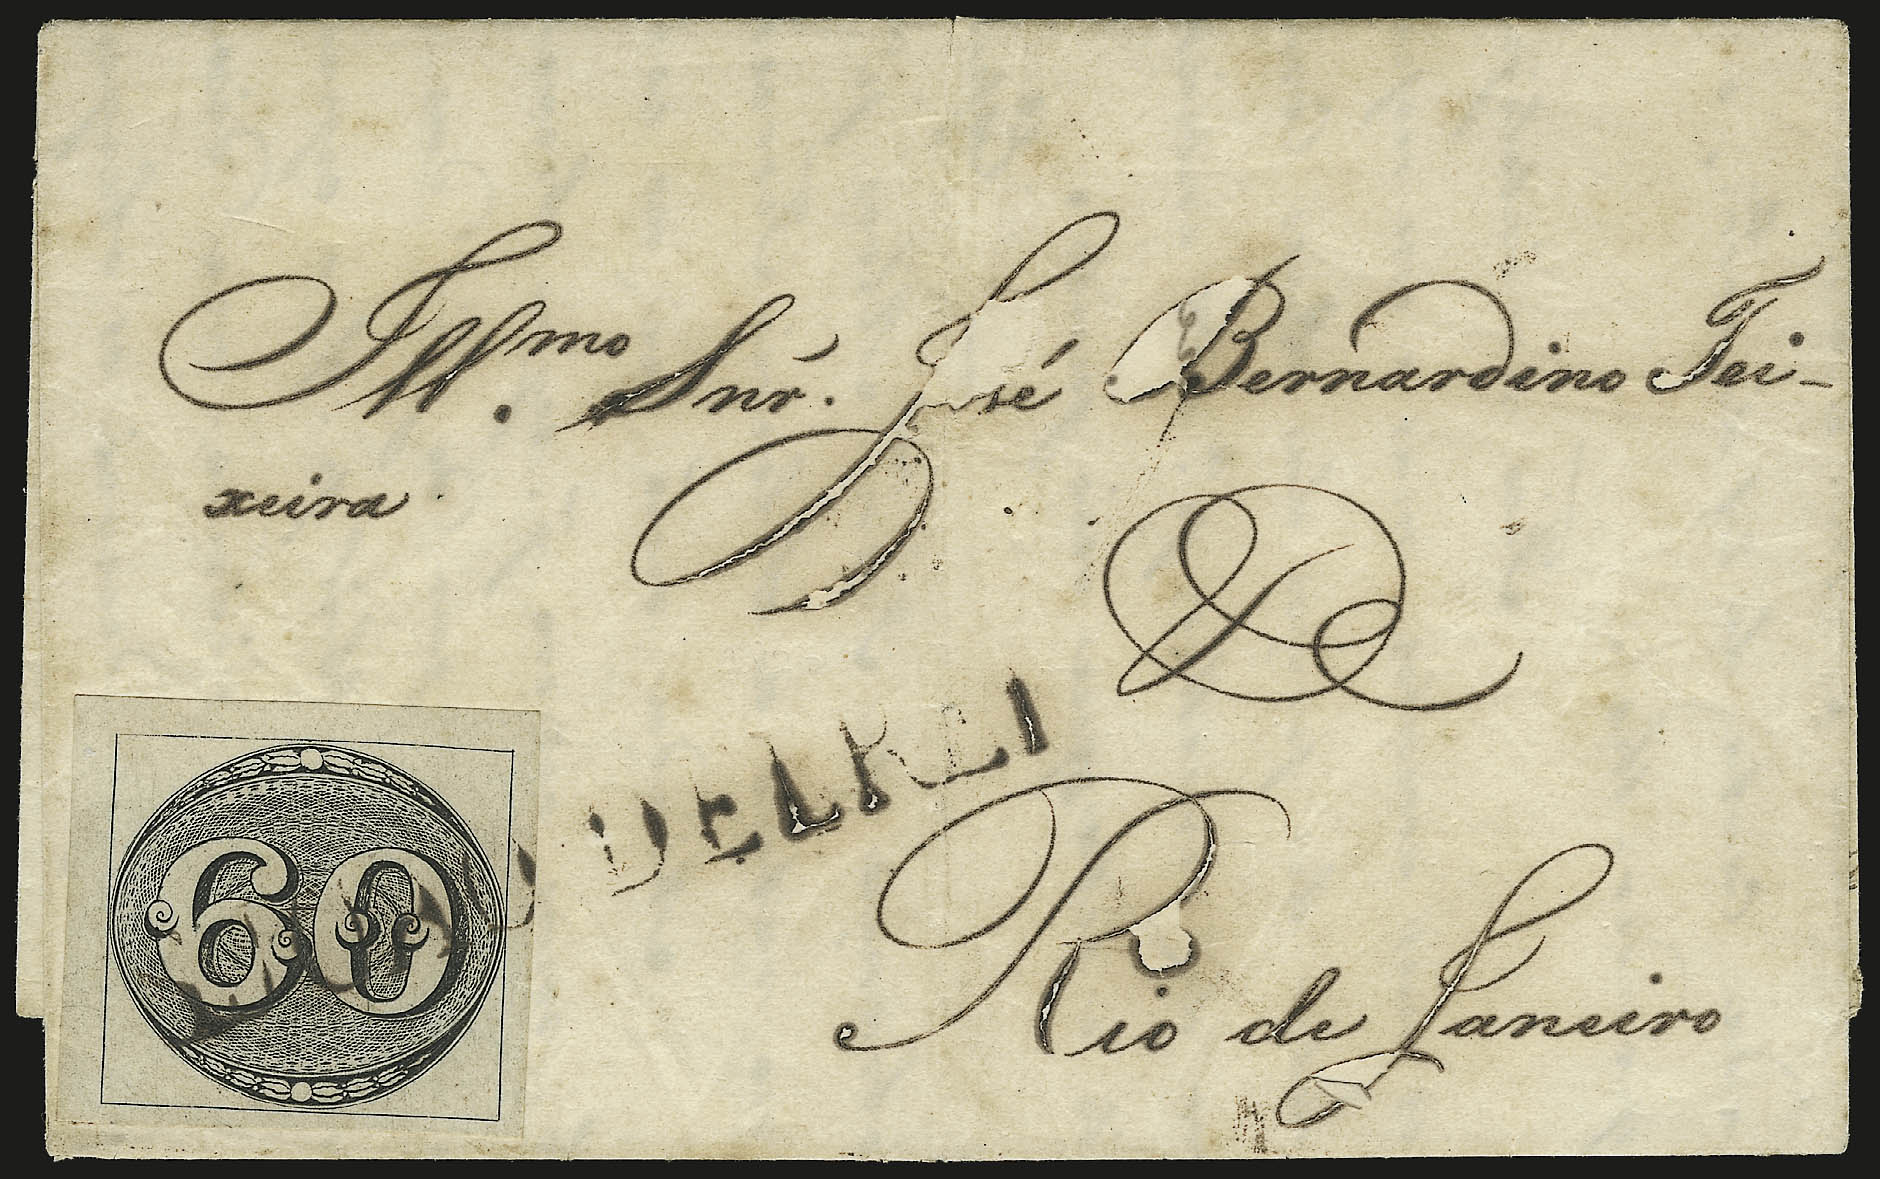 Ill.mo Snr. José Bernardino Tei-
xeira.
DELREI
60
Rio de Janeiro